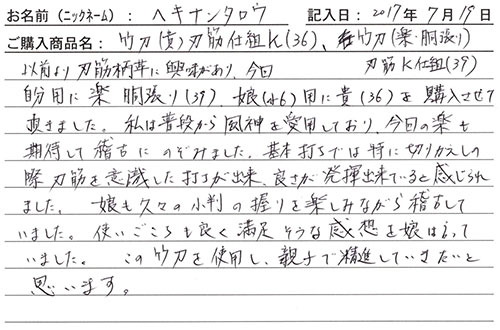 お名前(ニックネーム): ヘキナンタロウ 記入日:2017年7月19日
ご購入商品名: 竹刀(貴)刃筋仕組K(36)、竹刀(楽・胴張り)
刃筋K仕組(39)
以前より刃筋柄革に興味があり、今回
自分用に楽 胴張り(39)、娘(小6)用に貴(36)を購入させて
頂きました。私は普段から風神を愛用しており、今回の楽も
期待して稽古にのぞみました。基本打ちでは特に切りかえしの
際刃筋を意識した打ちが出来、良さが発揮出来ていると感じられ
ました。娘も久々の小判の握りを楽しみながら稽古して
いました。使いごこちも良く満足そうな感想を娘は言って
いました。この竹刀を使用し、親子で精進していきたいと
思います。